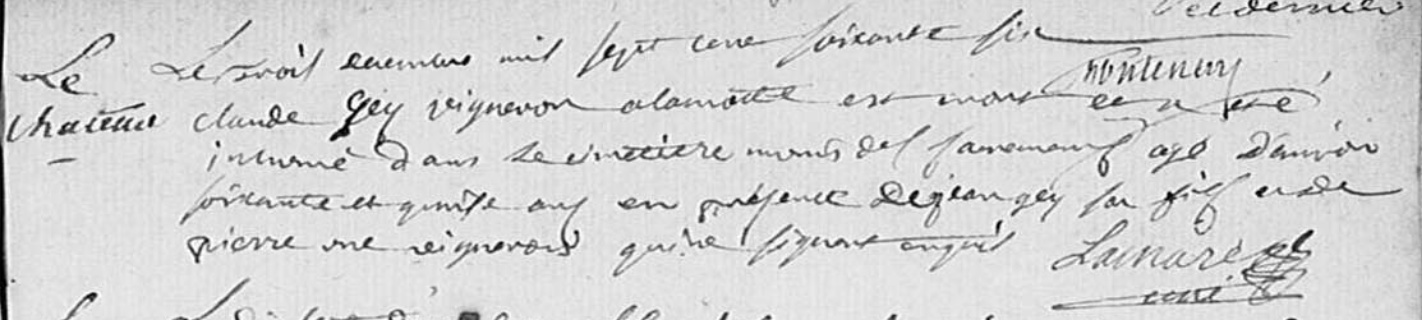 Le
chateau
Le trois decembre mil sept cent soixante six
claude Gey vigneron a la motte est mort et a esté
inhumé dans le cimetiere munis des sacremens agé d'environ
soixante et quinse ans en présence de jean gey son fils et de
pierre vigneron qui ne signent enquis Lamare
curé